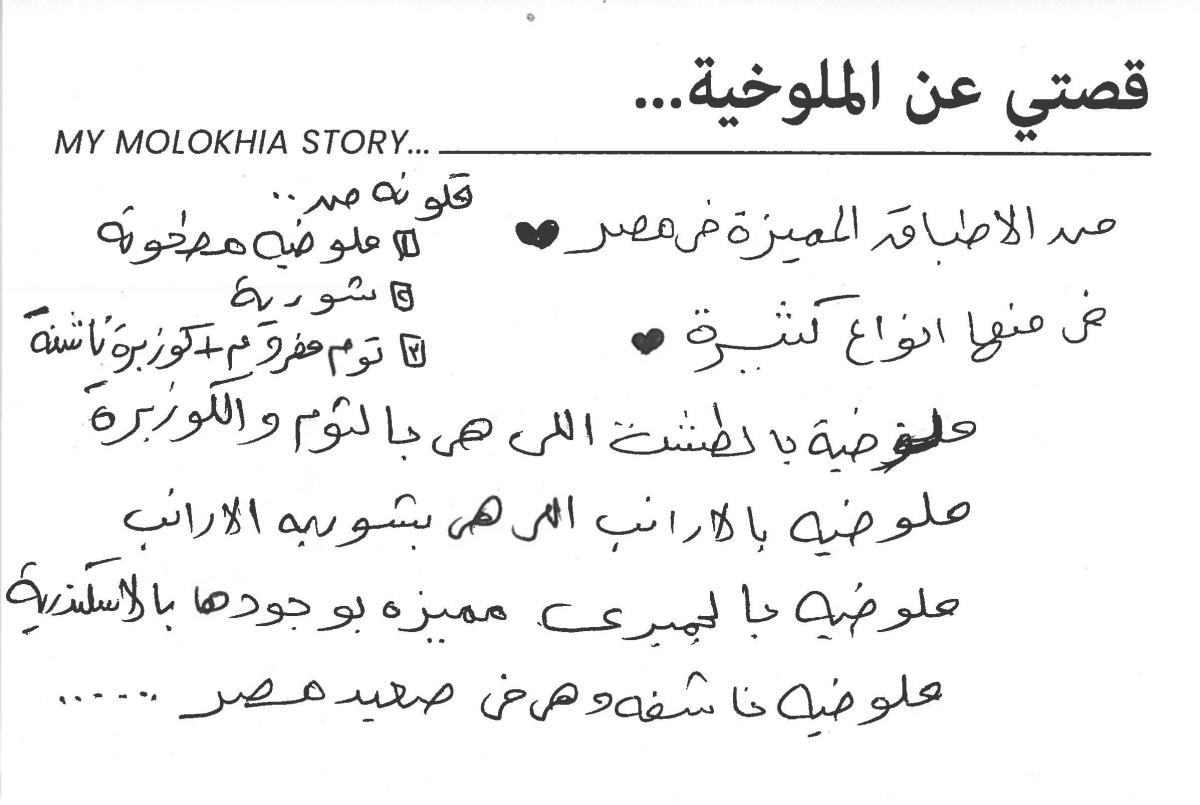 قصتي عن الملوخية...
MY MOLOKHIA STORY...
من الاطباق المميزة فى مصر ♥
فى منها انواع كثيرة ♥
مكونه من..
١ ملوخيه مطحونة
٢ شوربة
٣ توم مفروم + كوزبرة ناشفة
ملوخية بالطشت اللى هى بالثوم والكوزبرة
ملوخيه بالارانب اللى هى بشوربه الارانب
ملوخيه بالجمبرى مميزه بوجودها بالاسكندرية
ملوخيه ناشفه وهى فى صعيد مصر ......